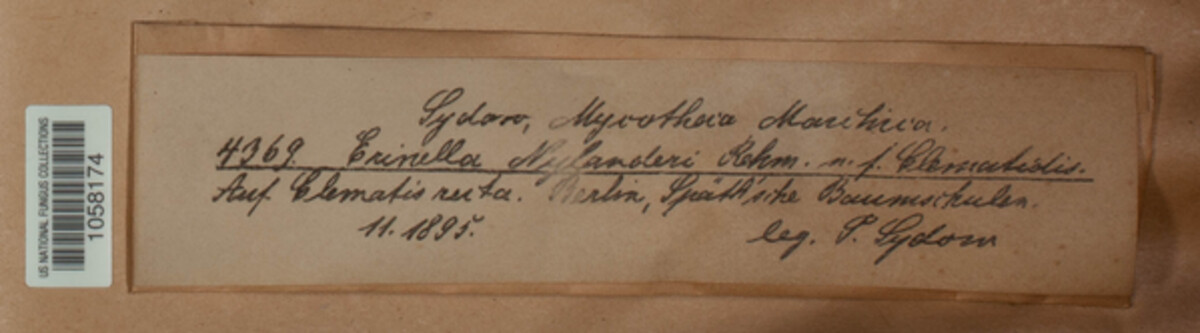 US NATIONAL FUNGUS COLLECTIONS
1058174
Sydow, Mycotheca Marchica.
4369. Erinella Nylanderi Rehm. n. f. Clematidis.
Auf Clematis recta. Berlin, Späth'sche Baumschulen.
11. 1895.
leg. P. Sydow